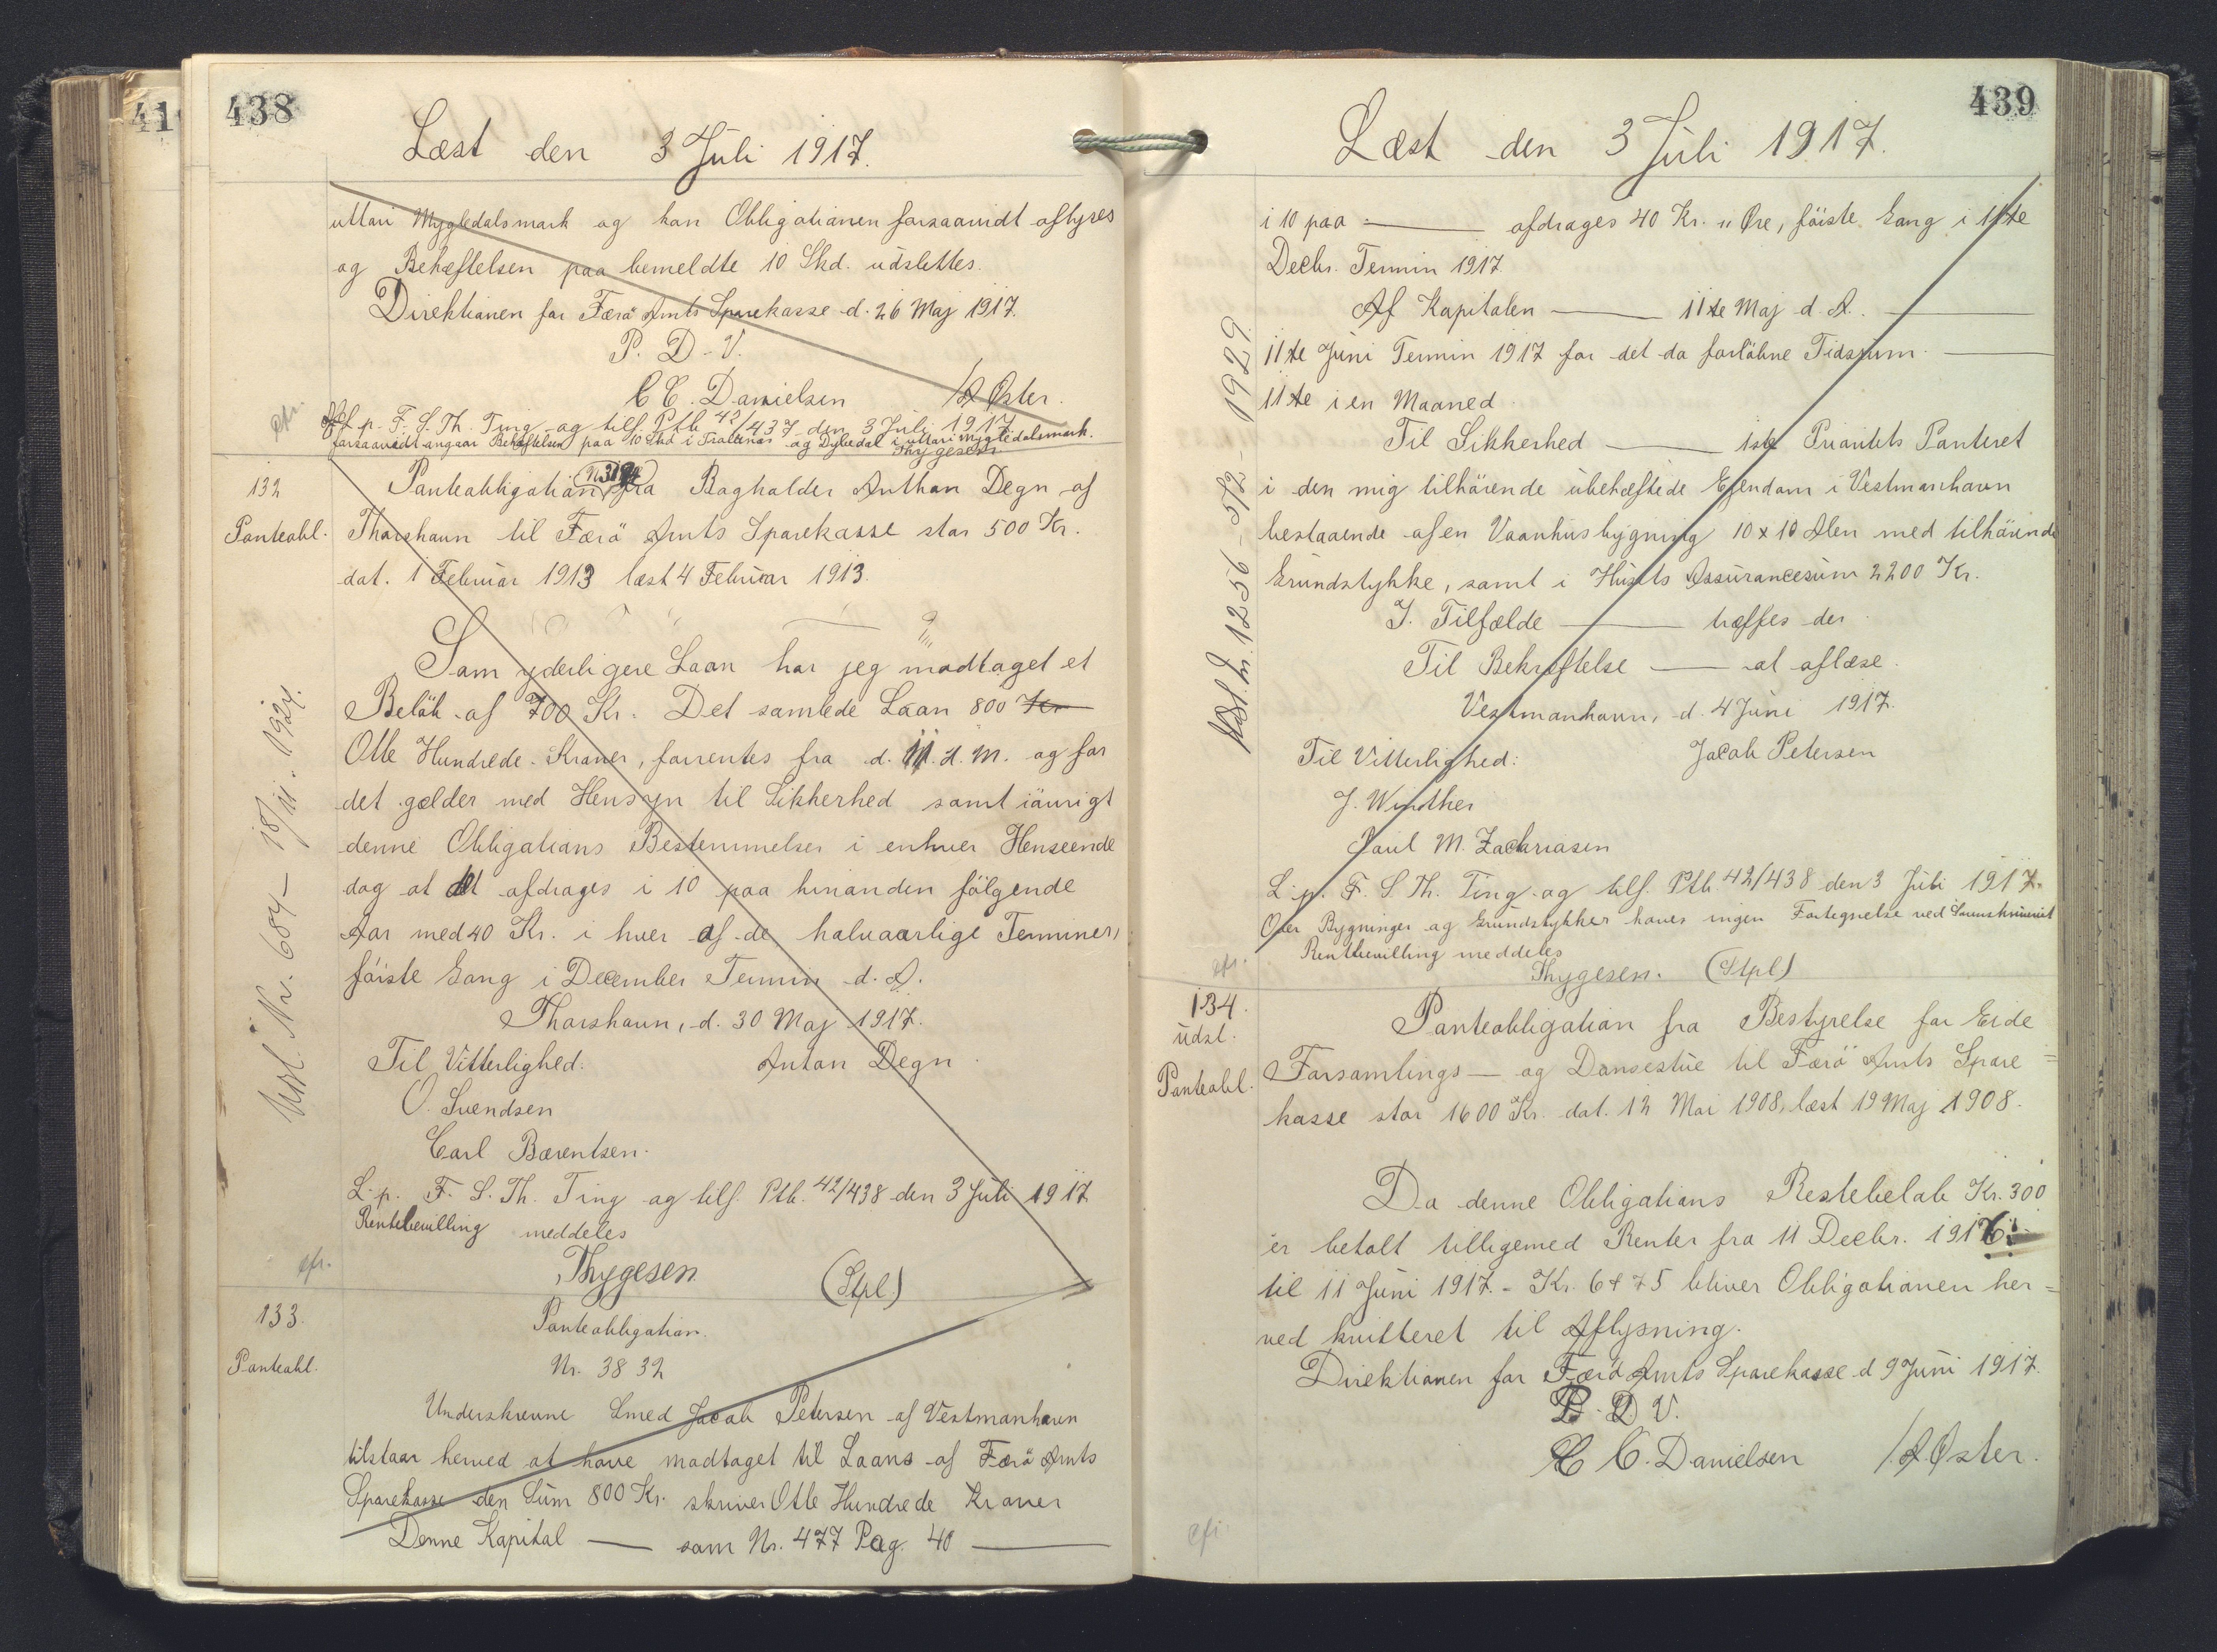 41
438
Læst den 3 Juli 1917.
uttari Mygledalsmark og kan Obligationen forsaavidt aflyses
og Behæftelsen paa bemeldte 10 Skd. udslettes.
Direktionen for Færö Amts Sparekasse d. 26 Maj 1917.
P. D. V.
C C. Danielsen / A Øster.
cfr.
Afl. p. F. S. Th. Ting og tilf. Ptb 42/437 den 3 Juli 1917
forsaavidt angaar Behæftelsen paa 10 Skd i og Dybedal i uttari Mygledalsmark.
Thygesen.
132
Panteobl.
Panteobligation fra Bogholder Anthon Degn af
Thorshavn til Færö Amts Sparekasse stor 500 Kr.
dat. 1 Februar 1913 læst 4 Februar 1913.
Som yderligere Laan har jeg modtaget et
Belöb af 700 Kr. Det samlede Laan 800 Kr
Otte Hundrede Kroner, forrentes fra d. 11. d. M. og for
det gælder med Hensyn til Sikkerhed samt iövrigt
denne Obligations Bestemmelser i enhver Henseende
dog at det afdrages i 10 paa hinanden fölgende
Aar med 40 Kr. i hver af de halvaarlige Terminer,
förste Gang i December Termin d. A.
Thorshavn, d. 30 Maj 1917.
Til Vitterlighed. Anton Degn
O. Svendsen
Carl Bærentsen.
L. p. F. S. Th. Ting og tilf. Ptb. 42/438 den 3 Juli 1917
Rentebevilling meddeles
Thygesen (Stpl.)
cfr.
Udsl. Nr. 684 - 18/11. 1924.
133.
Panteobl.
Panteobligation.
Nr. 3832
Underskrevne Smed Jacob Petersen af Vestmanhavn
tilstaar herved at have modtaget til Laans af Færö Amts
Sparekasse den Sum 800 Kr. skriver Otte Hundrede Kroner
Denne Kapital — som Nr. 477 Pag. 40 —
439
Læst den 3 Juli 1917.
i 10 paa — afdrages 40 Kr. " Øre, förste Gang i 11te
Decbr. Termin 1917.
Af Kapitalen — 11te Maj d. A. —
11te Juni Termin 1917 for det da forlöbne Tidsrum. —
11te i en Maaned
Til Sikkerhed — 1ste Prioritets Panteret
i den mig tilhörende ubehæftede Ejendom i Vestmanhavn
bestaaende af en Vaanhusbygning 10 x 10 Alen med tilhörende
Grundstykke, samt i Husets Assurancesum 2200 Kr.
I. Tilfælde — træffes der
Til Bekræftelse — at aflæse.
Vestmanhavn, d. 4 Juni 1917.
Til Vitterlighed: Jacob Petersen
J. Winther
Poul M. Zachariasen
L. p. F. S. Th. Ting og tilf. Ptb. 42/438 den 3 Juli 1917.
Over Bygninger og Grundstykker haves ingen Fortegnelse ved Sorenskriveriet
Rentebevilling meddeles
Thygesen. (Stpl)
cfr.
Udsl. Nr. 1256 - 5/2 - 1929
134.
udsl.
Panteobl.
Panteobligation fra Bestyrelse for Eide
Forsamlings — og Dansestue til Færö Amts Spare=
kasse stor 1600 Kr. dat. 12 Mai 1908, læst 19 Maj 1908.
Da denne Obligations Restebelöb Kr. 300
er betalt tilligemed Renter fra 11 Decbr. 1916
til 11 Juni 1917. - Kr. 6 + 75 bliver Obligationen her=
ved kvitteret til Aflysning.
Direktionen for Færö Amts Sparekasse d 9 Juni 1917.
P. D V.
C C. Danielsen / A. Øster.